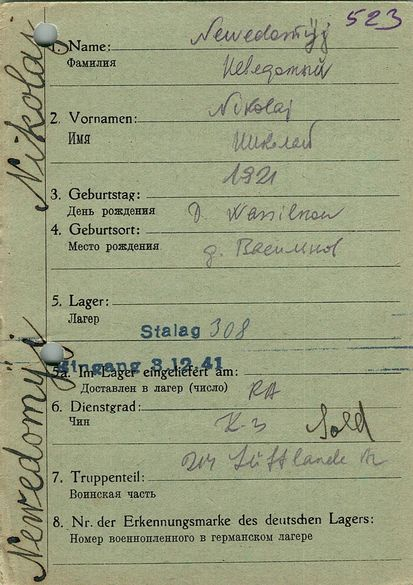 523
Newedomyj
1. Name:
Фамилия
Неведомый
Nikolaj
2. Vornamen:
Имя
Николай
1921
3. Geburtstag:
День рождения
D. Wassilkow
4. Geburtsort:
Место рождения
д. Василков
5. Lager:
Лагер
Stalag 308
Eingang 3.12.41
5a. Im Lager eingeliefert am:
Доставлен в лагер (число)
RA
6. Dienstgrad:
Чин
K-3
Sold
7. Truppenteil:
Воинская часть
204
8. Nr. der Erkennungsmarke des deutschen Lagers:
Номер военнопленного в германском лагере
Newedomÿj Nikolaj